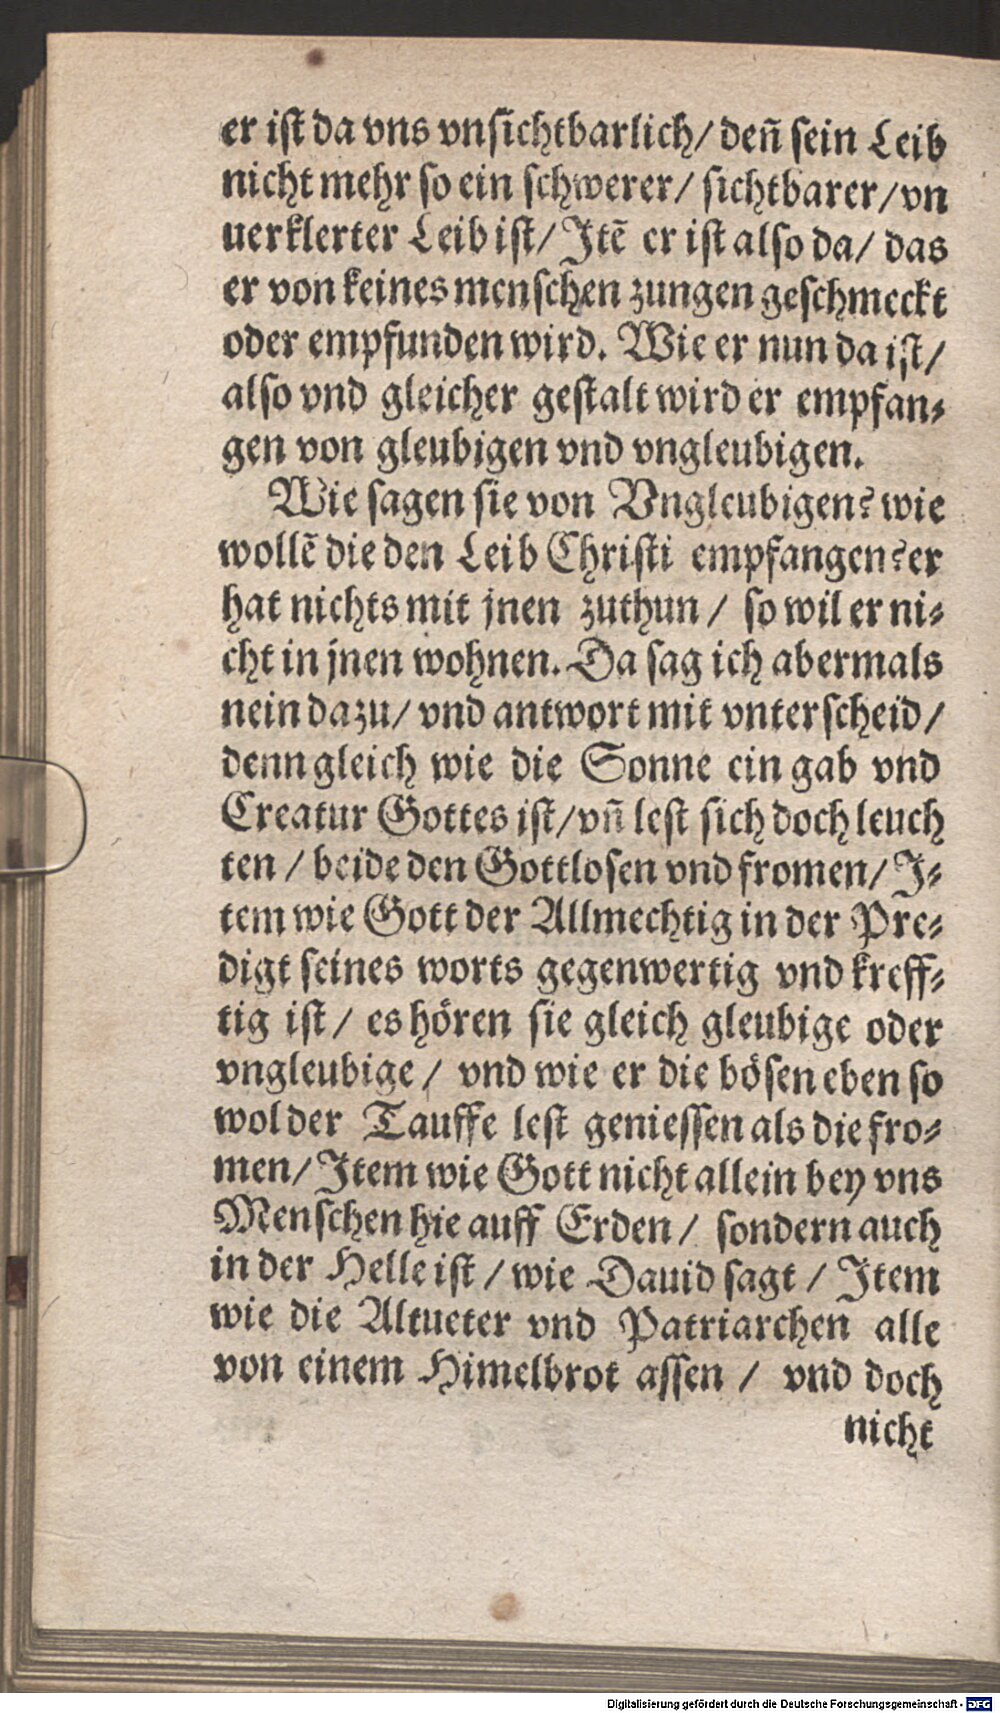 er ist da vns vnsichtbarlich/ deñ sein Leib
nicht mehr so ein schwerer/ sichtbarer/ vn
uerklerter Leib ist/ Itē er ist also da/ das
er von keines menschen zungen geschmeckt
oder empfunden wird. Wie er nun da ist/
also vnd gleicher gestalt wird er empfan⸗
gen von gleubigen vnd vngleubigen.
Wie sagen sie von Vngleubigen? wie
wollē die den Leib Christi empfangen? er
hat nichts mit jnen zuthun / so wil er ni⸗
cht in jnen wohnen. Da sag ich abermals
nein dazu/ vnd antwort mit vnterscheid/
denn gleich wie die Sonne ein gab vnd
Creatur Gottes ist/ vñ lest sich doch leuch
ten / beide den Gottlosen vnd fromen/ I⸗
tem wie Gott der Allmechtig in der Pre⸗
digt seines worts gegenwertig vnd kreff⸗
tig ist/ es hören sie gleich gleubige oder
vngleubige/ vnd wie er die bösen eben so
wol der Tauffe lest geniessen als die fro⸗
men/ Item wie Gott nicht allein bey vns
Menschen hie auff Erden/ sondern auch
in der Helle ist / wie Dauid sagt / Item
wie die Altueter vnd Patriarchen alle
von einem Himelbrot assen / vnd doch
nicht
Digitalisierung gefördert durch die Deutsche Forschungsgemeinschaft - DFG